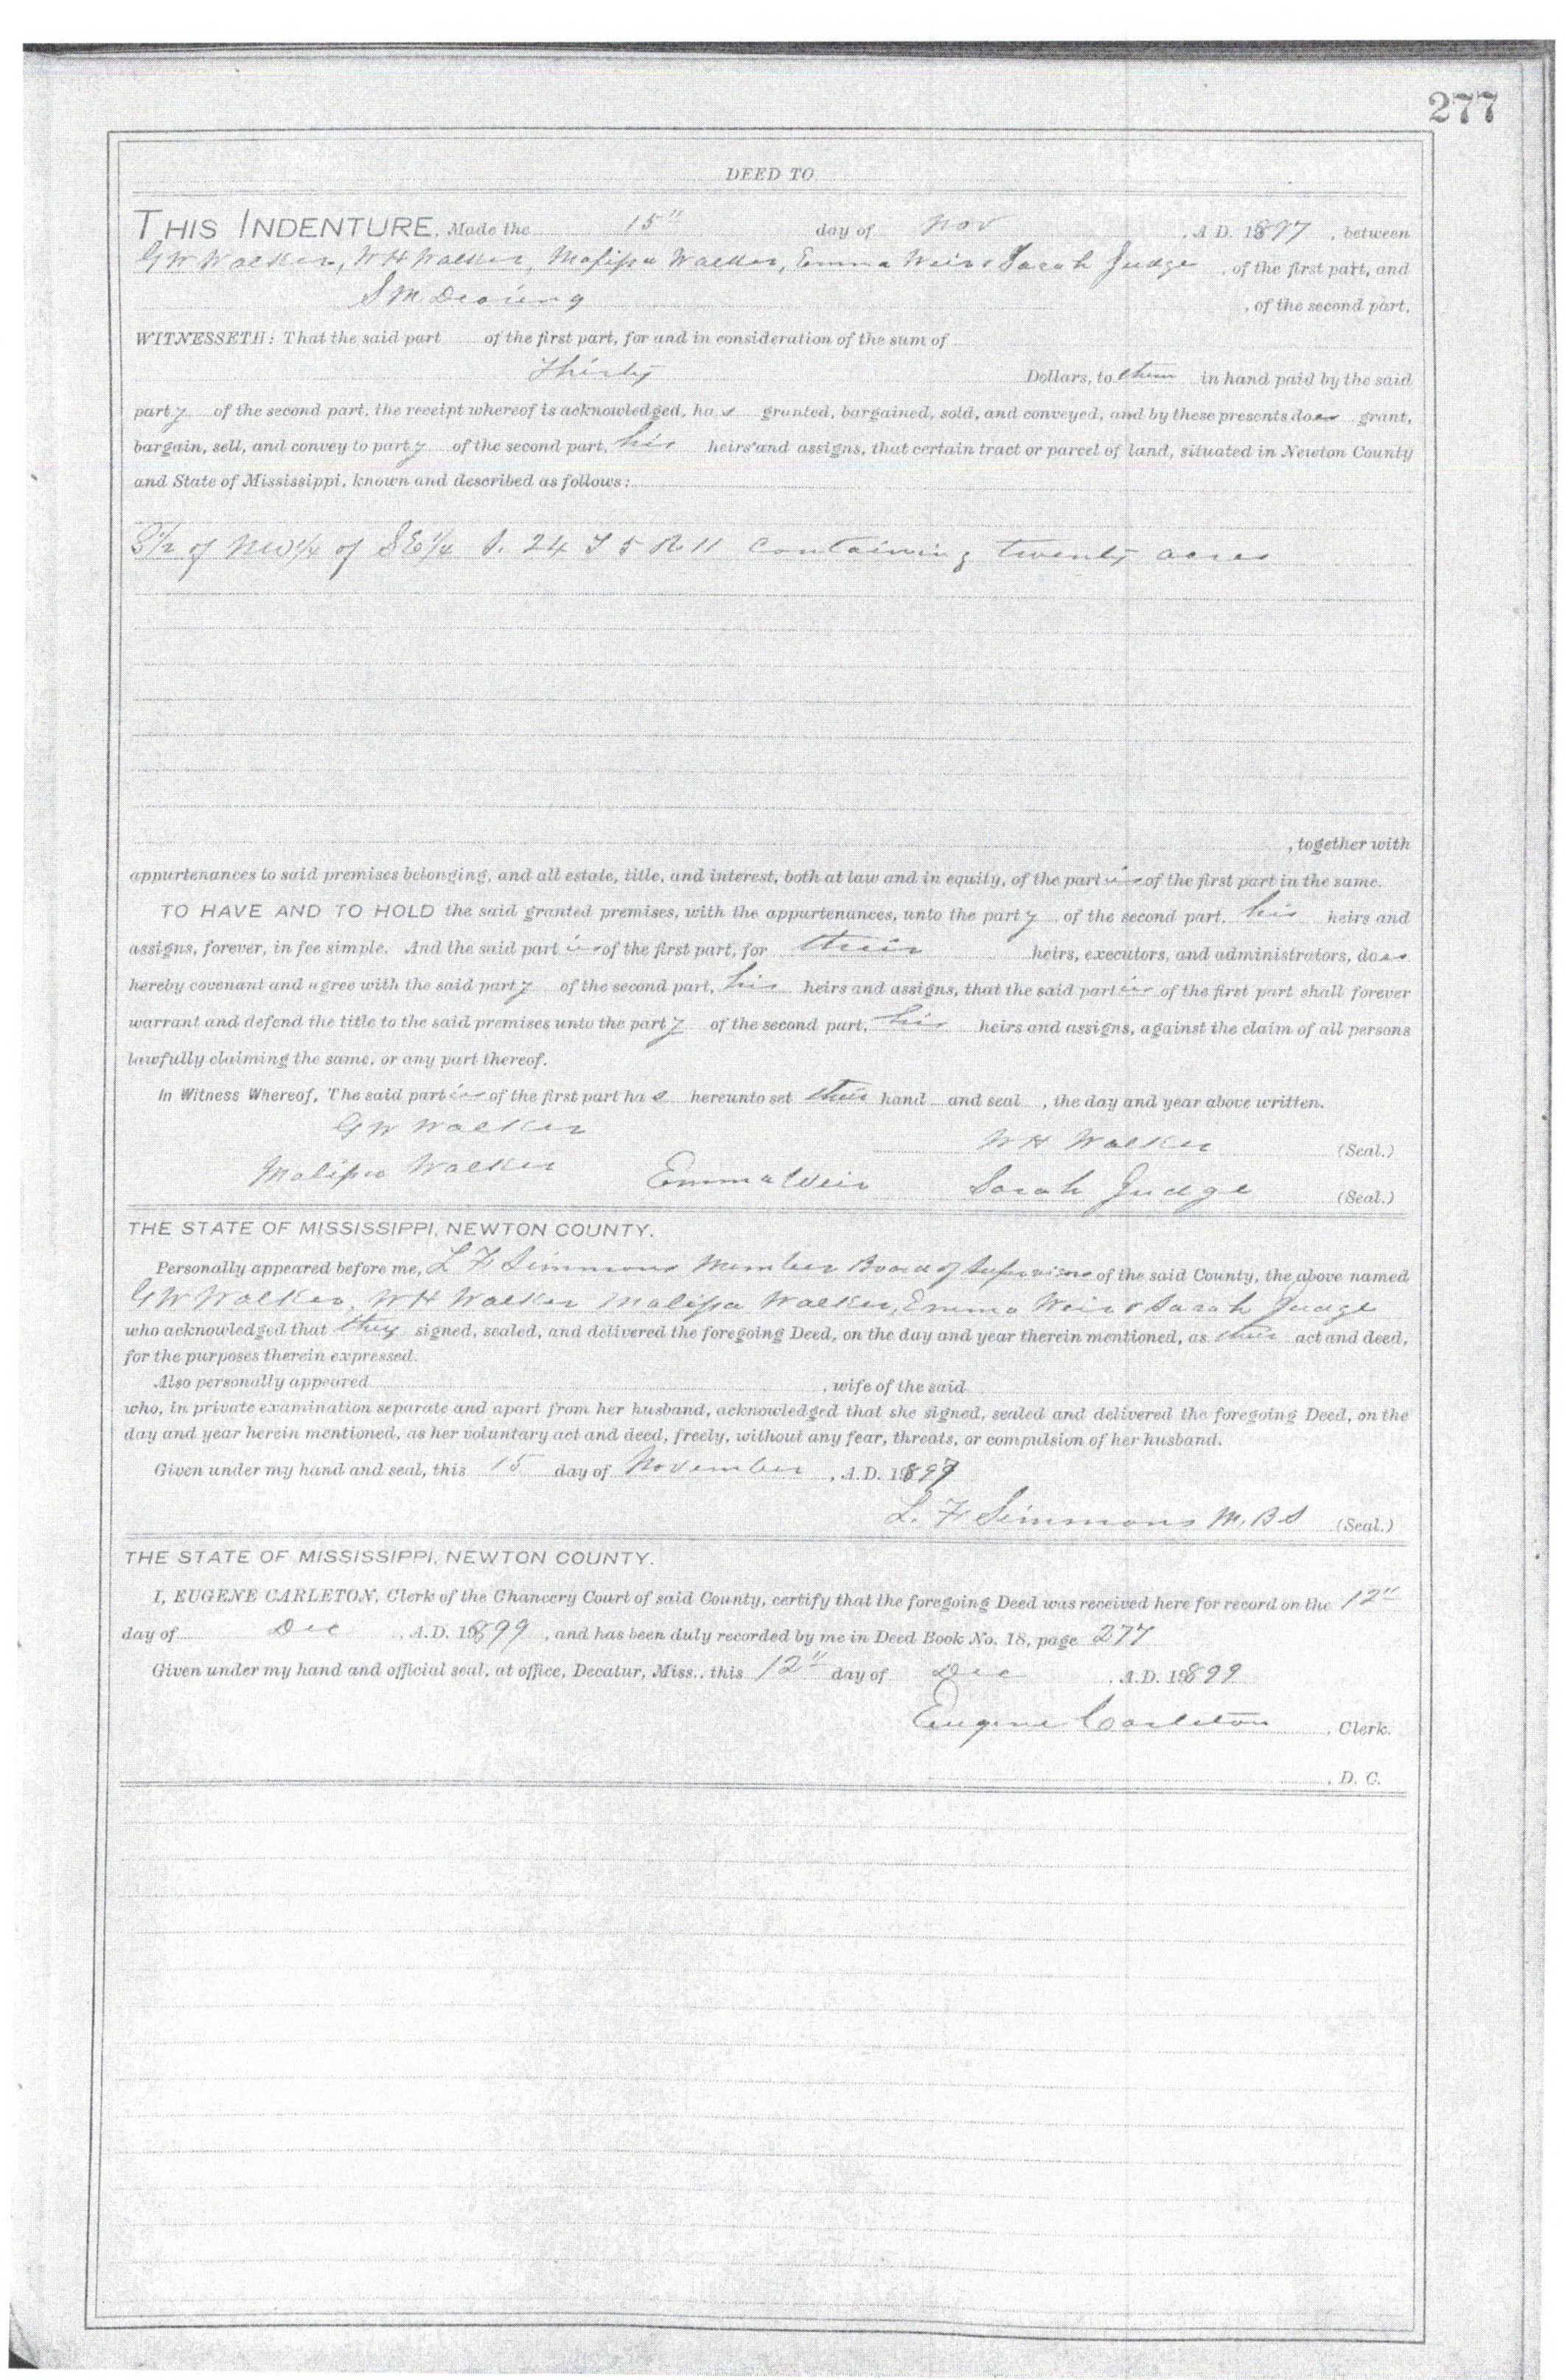 277
DEED TO
THIS INDENTURE, Made the 15" day of Nov , A D. 1897 , between
G W Walker, W H Walker, Malissa Walker, Emma Weir & Sarah Judge , of the first part, and
S M Dearing , of the second part,
WITNESSETH: That the said part of the first part, for and in consideration of the sum of
Thirty Dollars, to them in hand paid by the said
party of the second part, the receipt whereof is acknowledged, has granted, bargained, sold, and conveyed, and by these presents does grant,
bargain, sell, and convey to party of the second part, his heirs and assigns, that certain tract or parcel of land, situated in Newton County
and State of Mississippi, known and described as follows:
S½ of NW¼ of SE¼ S. 24 T 5 R 11 Containing twenty acres
, together with
appurtenances to said premises belonging, and all estate, title, and interest, both at law and in equity, of the parties of the first part in the same.
TO HAVE AND TO HOLD the said granted premises, with the appurtenances, unto the party of the second part, his heirs and
assigns, forever, in fee simple. And the said parties of the first part, for their heirs, executors, and administrators, does
hereby covenant and agree with the said party of the second part, his heirs and assigns, that the said parties of the first part shall forever
warrant and defend the title to the said premises unto the party of the second part, his heirs and assigns, against the claim of all persons
lawfully claiming the same, or any part thereof.
In Witness Whereof, The said parties of the first part has hereunto set their hand and seal , the day and year above written.
G W Walker W H Walker (Seal.)
Malissa Walker Emma Weir Sarah Judge (Seal.)
THE STATE OF MISSISSIPPI, NEWTON COUNTY.
Personally appeared before me, L F Simmons Member Board of Supervisors of the said County, the above named
G W Walker, W H Walker Malissa Walker, Emma Weir & Sarah Judge
who acknowledged that they signed, sealed, and delivered the foregoing Deed, on the day and year therein mentioned, as their act and deed,
for the purposes therein expressed.
Also personally appeared , wife of the said
who, in private examination separate and apart from her husband, acknowledged that she signed, sealed and delivered the foregoing Deed, on the
day and year herein mentioned, as her voluntary act and deed, freely, without any fear, threats, or compulsion of her husband.
Given under my hand and seal, this 15 day of November , A.D. 1897
L. F Simmons M. B S (Seal.)
THE STATE OF MISSISSIPPI, NEWTON COUNTY.
I, EUGENE CARLETON, Clerk of the Chancery Court of said County, certify that the foregoing Deed was received here for record on the 12"
day of Dec , A.D. 1899 , and has been duly recorded by me in Deed Book No. 18, page 277
Given under my hand and official seal, at office, Decatur, Miss., this 12" day of Dec , A.D. 1899
Eugene Carleton , Clerk.
, D. C.